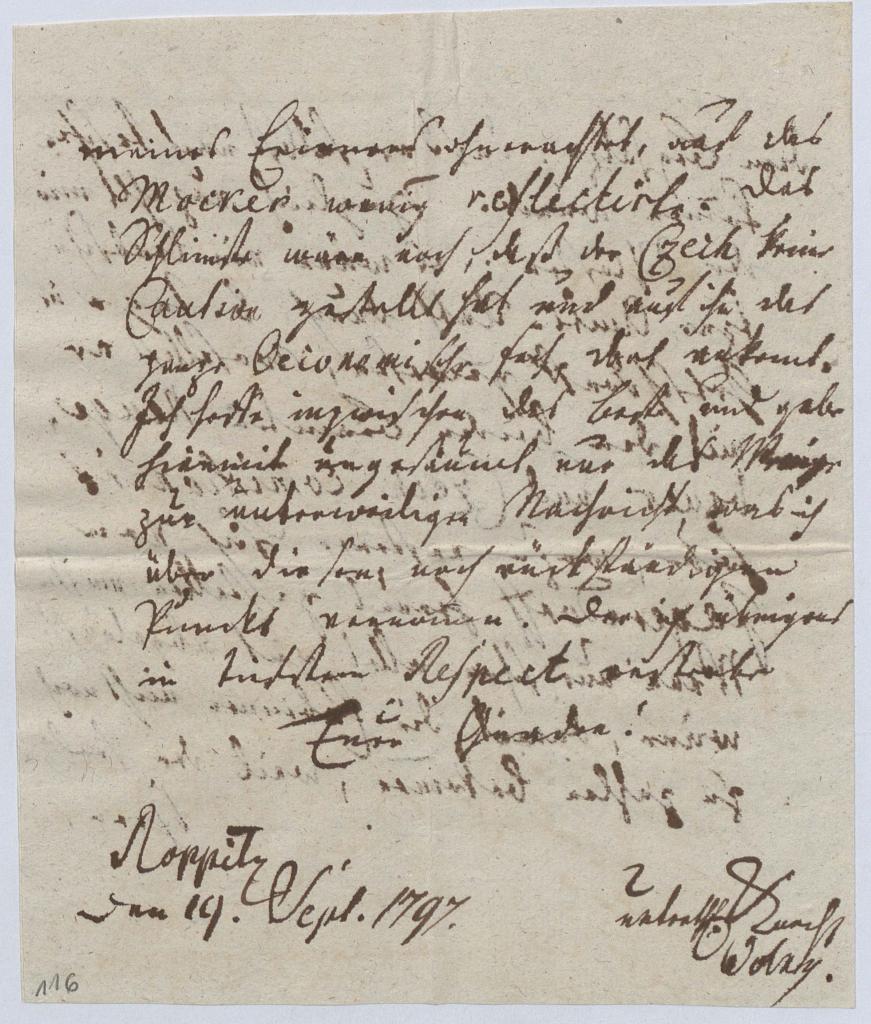 meines Erinnerns ohnerachtet, auf das
Macker wenig reflectirt. Das
Schlimste wäre noch, daß der Czech keine
Caution gestellt hat und auf ihn das
ganze Oeconomische Fach dort ankomt.
Ich hoffe inzwischen das beste und gebe
hiermit ungesäumt nur das
zur unterweiligen Nachricht, was ich
über die noch rückständigen
Puncte vernomen. Der ich übrigens
in tiefsten Respect ersterbe
Euer Gnaden!
Roppitz
den 19. Sept. 1797.
Knecht
Wolny.
116